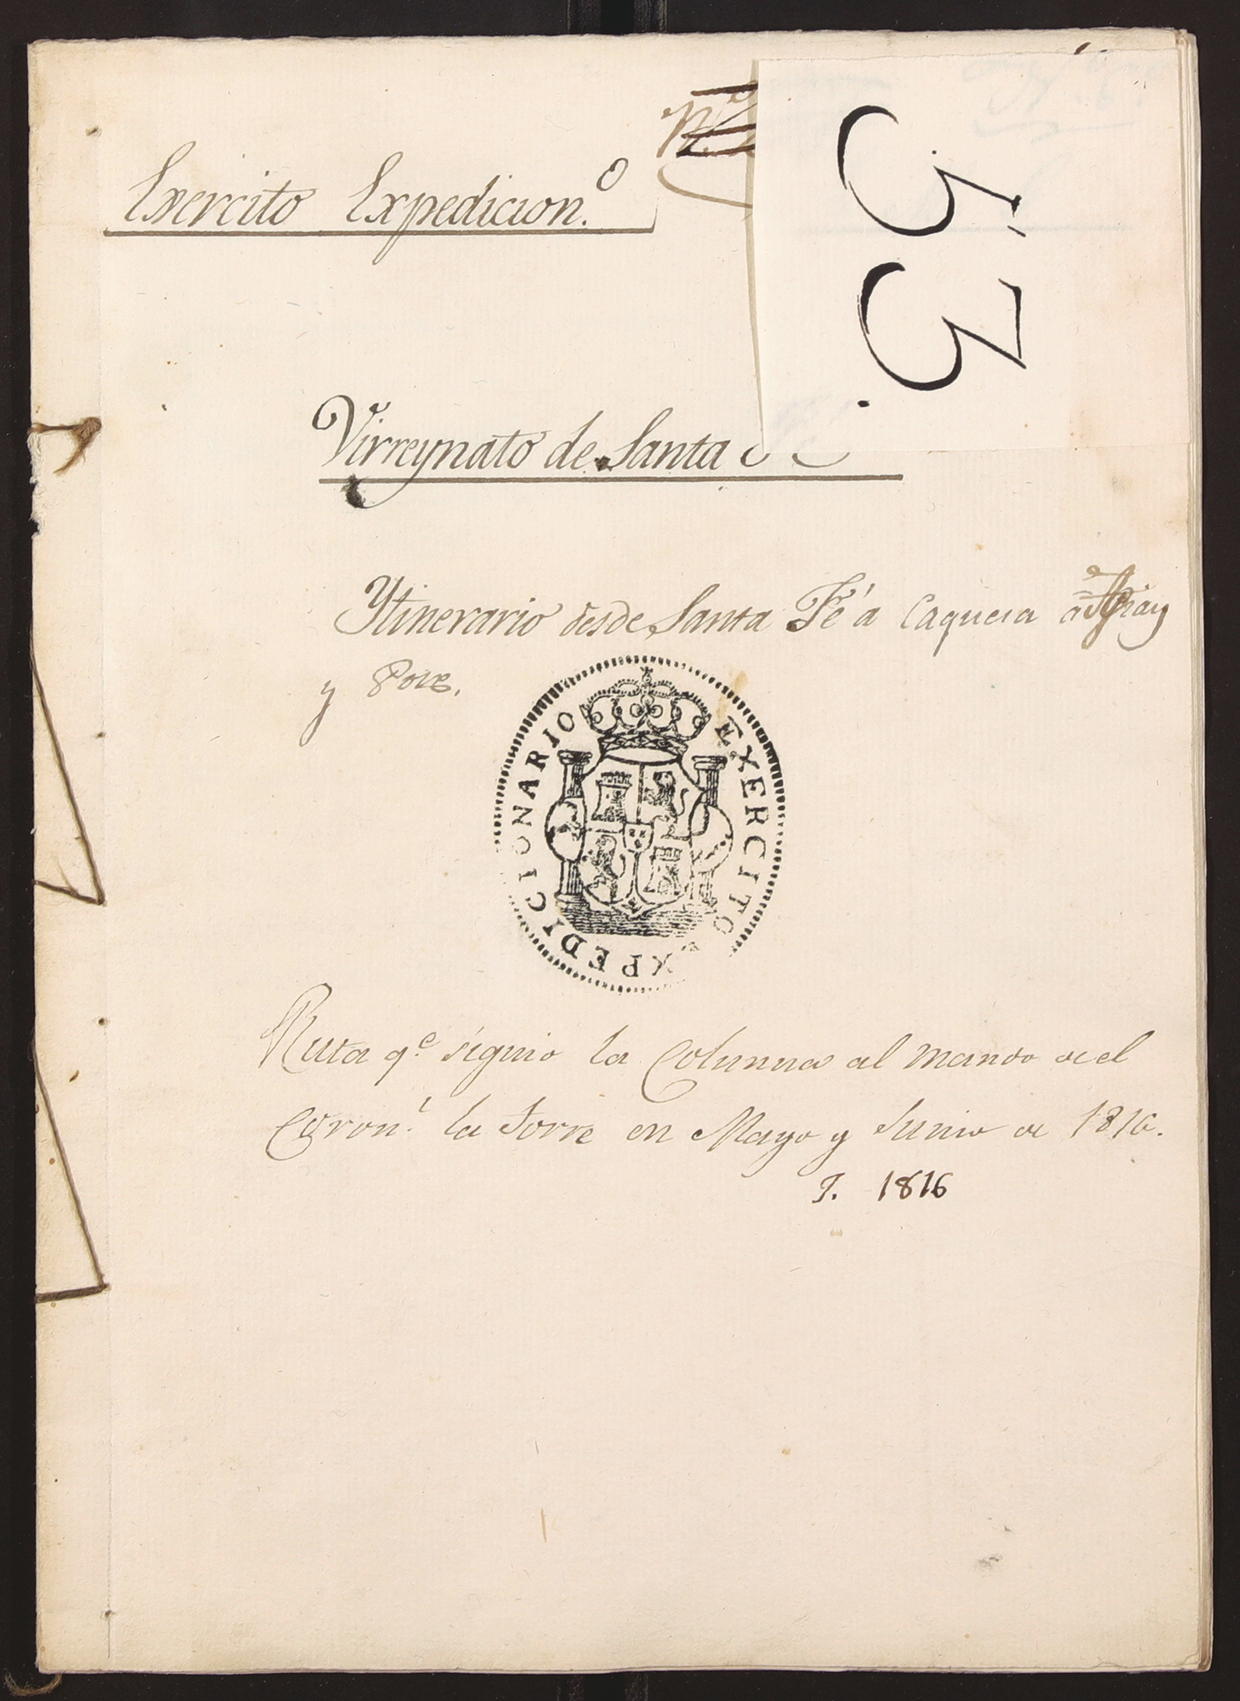 53.
Exercito Expedicion.º
Virreynato de Santa
Ytinerario desde Santa Fé a Caqueza à
y Pore.
EXERCITO EXPEDICIONARIO
Ruta q.e siguio la Columna al mando de el
Coron.l la Torre en Mayo y Junio de 1816.
J. 1816